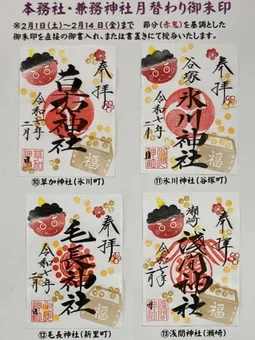 本務社・兼務神社月替わり御朱印
※2月1日(土)~2月14日(金)まで 節分(赤鬼)を基調とした
御朱印を直接の御書入れ、または書置きにて授与いたします。
奉拝
草加神社
令和七年
二月
日
福
⑩草加神社(氷川町)
奉拝
谷塚
氷川神社
令和七年
二月
日
福
⑪氷川神社(谷塚町)
奉拝
毛長神社
令和七年
二月
日
福
⑫毛長神社(新里町)
奉拝
瀬崎
浅間神社
令和七年
二月
日
福
⑬浅間神社(瀬崎)